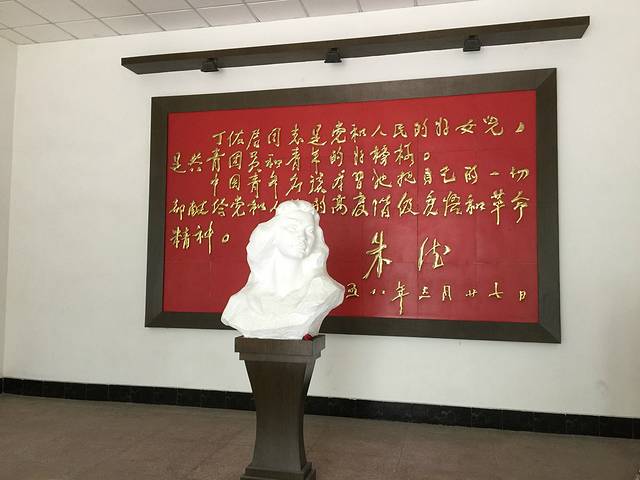 丁佑君同志是党和人民的好女儿，
是共青团员和青年的好榜样。
中国青年应该学习她把自己的一切
都献给党和人的高度阶级觉悟和革命
精神。
朱德
五八年三月廿七日